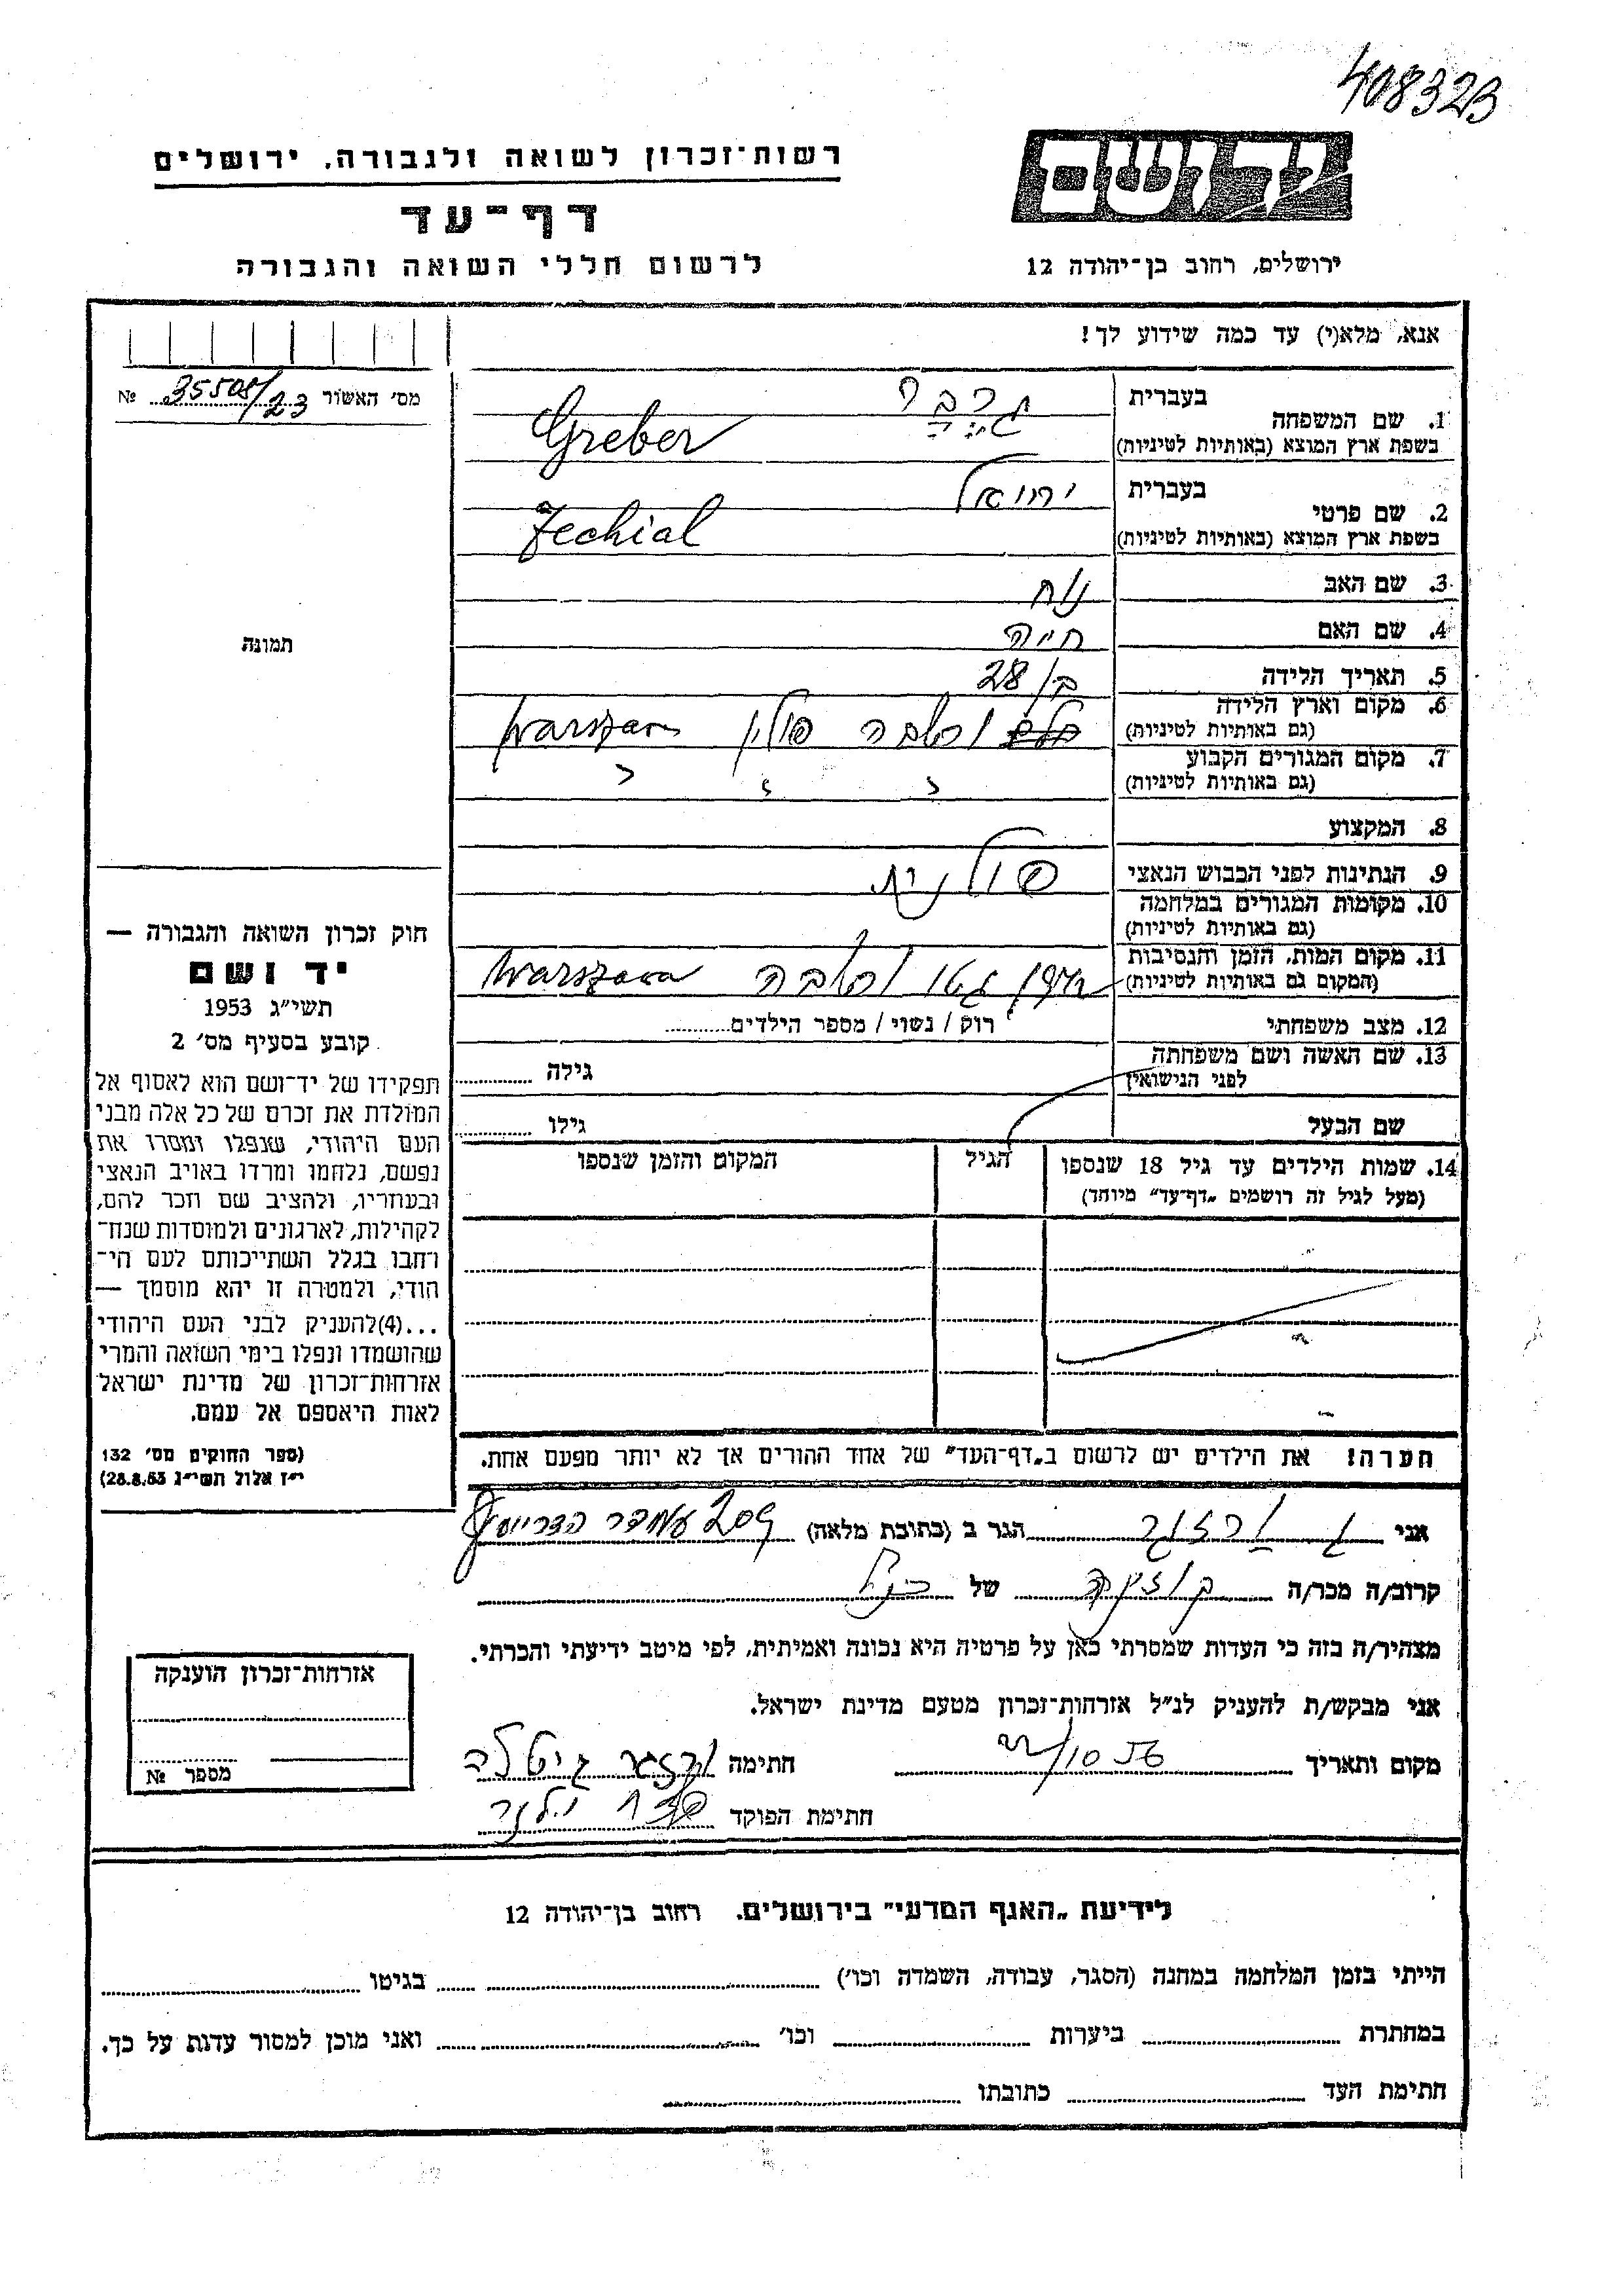 408323
רשות־זכרון לשואה ולגבורה. ירושלים
דף־עד
לרשום חללי השואה והגבורה
ירושלים, רחוב בן־יהודה 12
אנא, מלא(י) עד כמה שידוע לך!
מס׳ האשור 35508/23 №
1. שם המשפחה
בעברית גרבר
בשפת ארץ המוצא (באותיות לטיניות) Greber
2. שם פרטי
בעברית יחיאל
בשפת ארץ המוצא (באותיות לטיניות) Jechial
3. שם האב נוח
4. שם האם חיה
5. תאריך הלידה בן 28
6. מקום וארץ הלידה
(גם באותיות לטיניות) ורשבה פולין Warszawa
7. מקום המגורים הקבוע
(גם באותיות לטיניות) " " "
8. המקצוע
9. הנתינות לפני הכבוש הנאצי פולנית
10. מקומות המגורים במלחמה
(גם באותיות לטיניות)
11. מקום המות, הזמן והנסיבות
(המקום גם באותיות לטיניות) גטו ורשבה Warszawa
12. מצב משפחתי רוק / נשוי / מספר הילדים
13. שם האשה ושם משפחתה
לפני הנישואין גילה
שם הבעל גילו
14. שמות הילדים עד גיל 18 שנספו
(מעל לגיל זה רושמים „דף־עד״ מיוחד)
הגיל
המקום והזמן שנספו
הערה! את הילדים יש לרשום ב„דף־העד״ של אחד ההורים אך לא יותר מפעם אחת.
תמונה
חוק זכרון השואה והגבורה —
יד ושם
תשי״ג 1953
קובע בסעיף מס׳ 2
תפקידו של יד־ושם הוא לאסוף אל
המולדת את זכרם של כל אלה מבני
העם היהודי, שנפלו ומסרו את
נפשם, נלחמו ומרדו באויב הנאצי
ובעוזריו, ולהציב שם וזכר להם,
לקהילות, לארגונים ולמוסדות שנח־
רחבו בגלל השתייכותם לעם הי־
הודי, ולמטרה זו יהא מוסמך —
...(4)להעניק לבני העם היהודי
שהושמדו ונפלו בימי השואה והמרי
אזרחות־זכרון של מדינת ישראל
לאות היאספם אל עמם.
(ספר החוקים מס׳ 132
י״ז אלול תשי״ג 28.8.53)
אני ג הגר ב (כתובת מלאה) 209 עמידר
קרוב/ה מכר/ה של הנ"ל
מצהיר/ה בזה כי העדות שמסרתי כאן על פרטיה היא נכונה ואמיתית, לפי מיטב ידיעתי והכרתי.
אני מבקש/ת להעניק לנ״ל אזרחות־זכרון מטעם מדינת ישראל.
מקום ותאריך חתימה גיטלה
חתימת הפוקד
אזרחות־זכרון הוענקה
מספר №
לידיעת „האגף המדעי״ בירושלים. רחוב בן־יהודה 12
הייתי בזמן המלחמה במחנה (הסגר, עבודה, השמדה וכו׳) בגיטו
במחתרת ביערות וכו׳ ואני מוכן למסור עדות על כך.
חתימת העד כתובתו